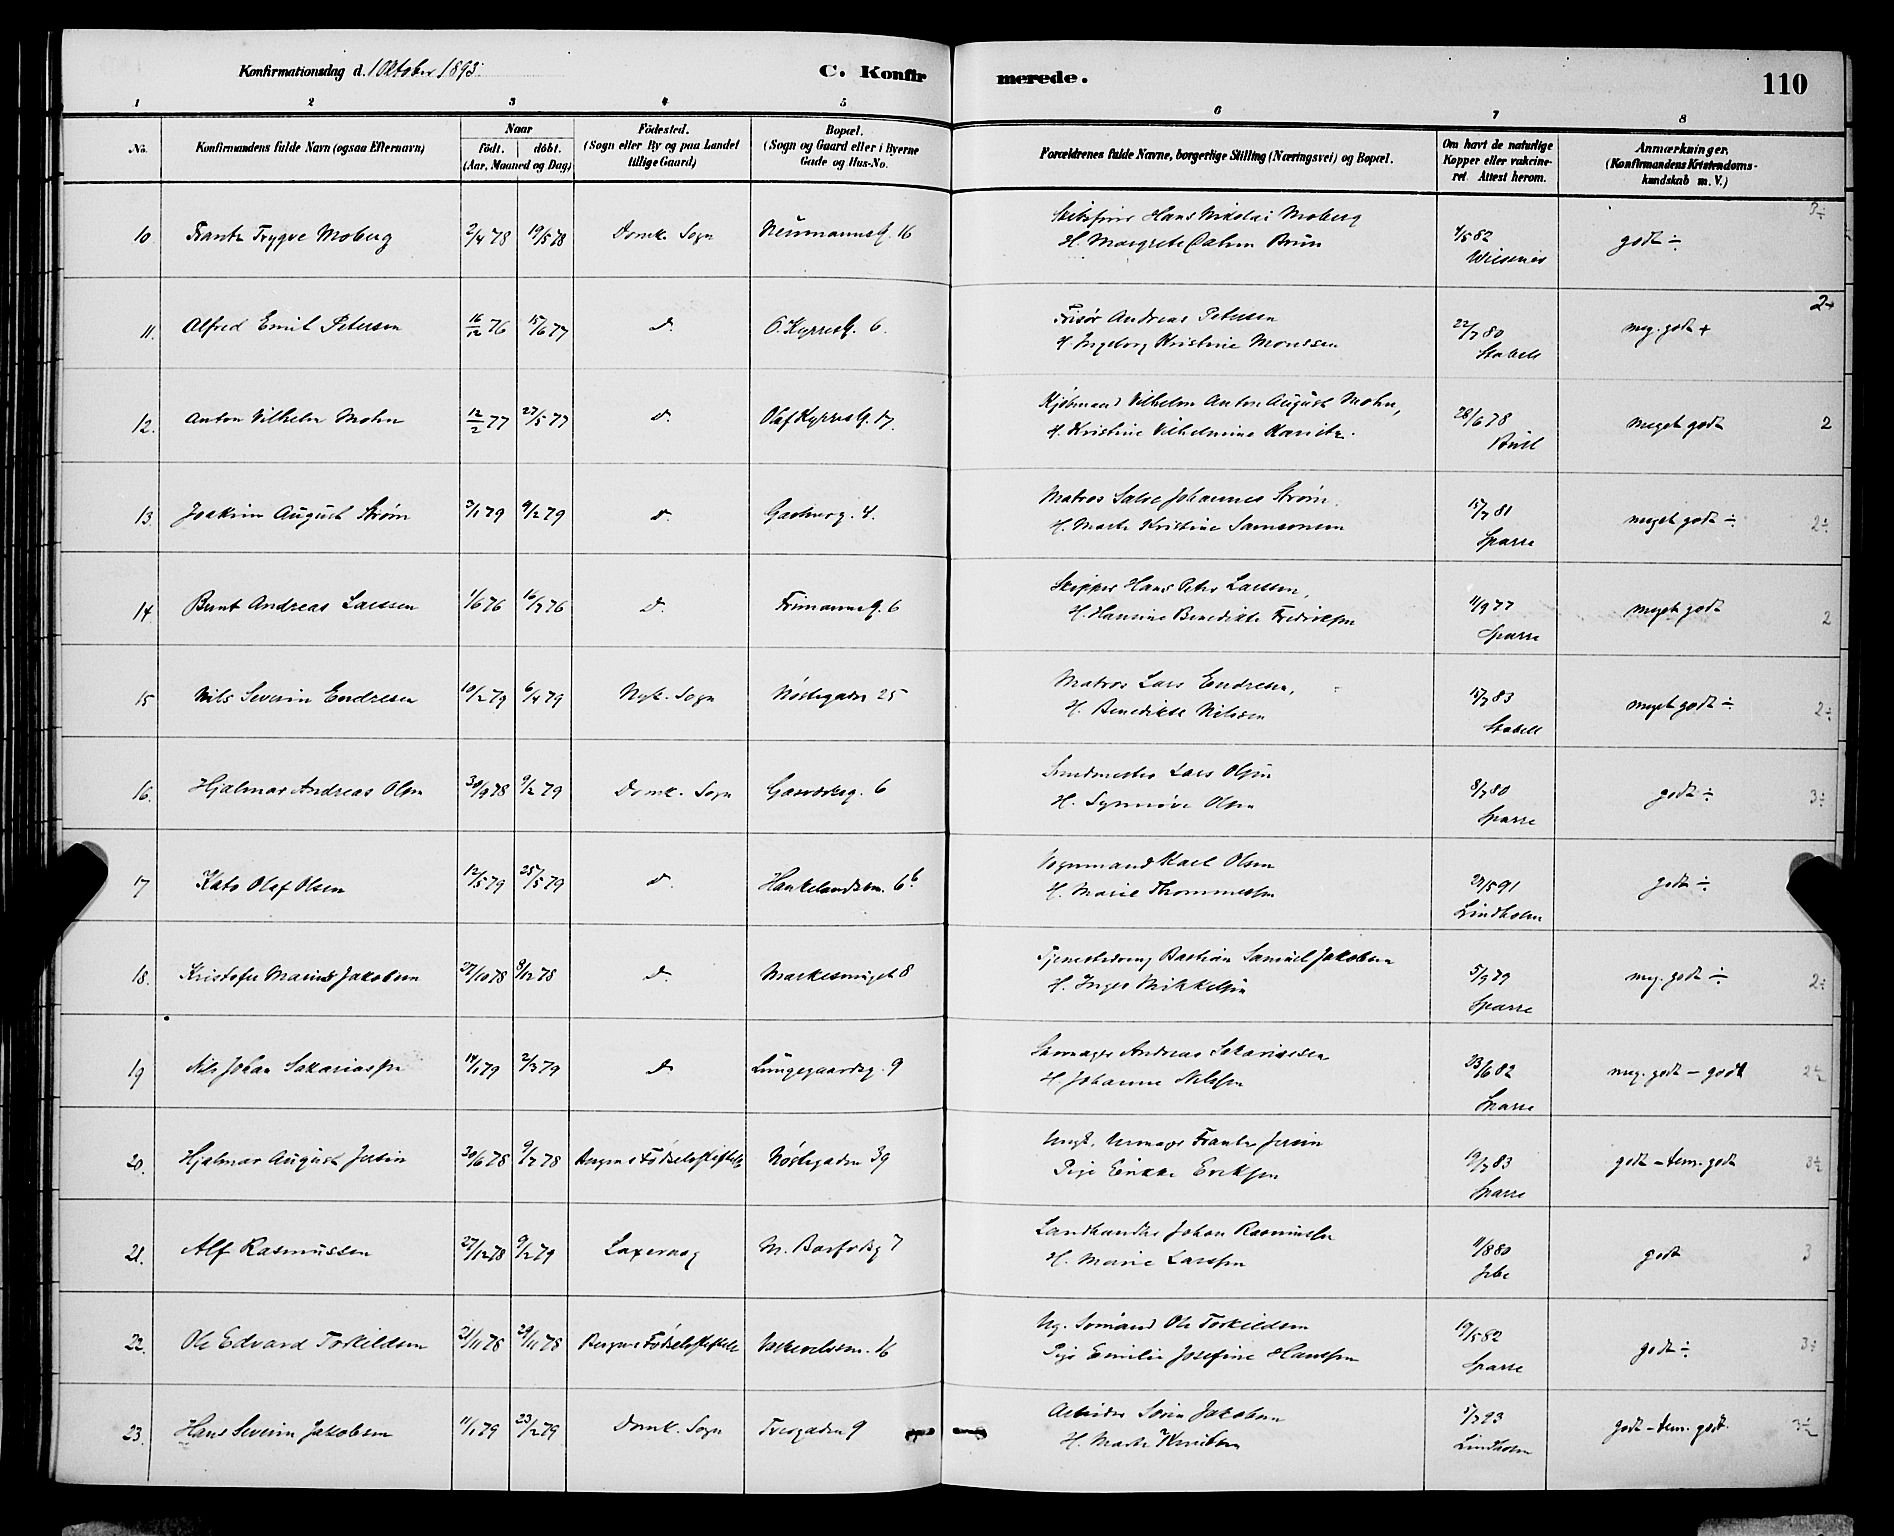 Konfirmationsdag d. 1 Oktober 1893.
C. Konfirmerede.
110
1 2 3 4 5 6 7 8
No.
Konfirmandens fulde Navn (ogsaa Efternavn)
Naar
födt. döbt.
(Aar, Maaned og Dag)
Födested.
(Sogn eller By og paa Landet
tillige Gaard)
Bopæl.
(Sogn og Gaard eller i Byerne
Gade og Hus-No.
Forældrenes fulde Navne, borgerlige Stilling (Næringsvei) og Bopæl.
Om havt de naturlige
Kopper eller vakcine-
ret Attest herom.
Anmærkninger.
(Konfirmandens Kristendoms-
kundskab m. V.)
10 Frantz Trygve Moberg 2/4 78 19/5 78 Domk. Sogn Neumannsg. 16
Skibsfører Hans Nikolai Moberg
H. Margrete Brun
4/5 82
godt ÷
3÷
11. Alfred Emil Petersen 16/12 76 15/6 77 d. O. Kyrresg. 6.
Frisør Andreas Petersen
H. Ingeborg Kristine Monssen
22/7 80
Stabell
meg. godt +
2+
12. Anton Vilhelm Mohn 12/2 77 27/5 77 d. Olaf Kyrresg. 17.
Kjøbmand Vilhelm Anton August Mohn,
H. Kristine Vilhelmine
28/6 78
meget godt
2
13. Joakim August Strøm 3/1 79 9/2 79 d. 4.
Matros Johannes Strøm.
H. Marte Kristine Samsonsen
15/7 81
Sparre
meget godt ÷
2÷
14 Bernt Andreas Larssen 1/6 76 16/7 76 d. Frimannsg. 6
Skipper Hans Peter Larssen,
H. Hansine Benedikte Fredriksen
11/9 77
Sparre
meget godt
2
15 Nils Severin Endresen 10/2 79 6/4 79 Nyk. Sogn Nøstegaden 25
Matros Lars Endresen,
H. Benedikte Nilssen
15/7 83
Stabell
meget godt ÷
2÷
16. Hjalmar Andreas Olsen 30/9 78 9/2 79 Domk. Sogn Gasverksg. 6
Smedmester Lars Olsen
H. Synnøve Olsen
8/7 80
Sparre
godt ÷
3÷
17 Kato Olaf Olsen 12/5 79 25/5 79 d. Haukelandsv. 6b
Vognmand Karl Olsen
H. Marie Thommessen
29/5 91
Lindholm
godt ÷
18. Kristofer Marius Jakobsen 27/10 78 8/12 78 d. Markesmuget 8
Tjenestedreng Bastian Samuel Jakobsen
H. Inger Mikkelsen
5/9 79
Sparre
meg. godt ÷
2÷
19 Nils Johan Sakariassen 14/1 79 2/3 79 d. Lungegaardsg. 9
Skomager Andreas Sakariassen
H. Johanne Nilsen
23/6 82
Sparre
meg. godt - godt
2½
20. Hjalmar August 30/6 78 9/7 78 Bergens Fødselsstiftelse Nøstegaden 39
Ungk. Frantz
Pige Erikke Eriksen
19/7 83
Sparre
godt - tem. godt
3½
21. Alf Rasmussen 27/12 78 9/2 79 Laxevaag 7
Landhandler Johan Rasmussen
H. Marie Larssen
11/8 80
godt
3
22. Ole Edvard Torkildsen 21/11 78 29/11 78 Bergens Fødselsstiftelse 16
Ug. Sømand Ole Torkildsen
Pige Emilie Josefine Hanssen
19/5 82
Sparre
godt ÷
3÷
23. Hans Severin Jakobsen 11/1 79 23/2 79 Domk. Sogn 9
Arbeider Søren Jakobsen
H. Marte Knutsen
5/7 93
Lindholm
godt - tem. godt.
3½